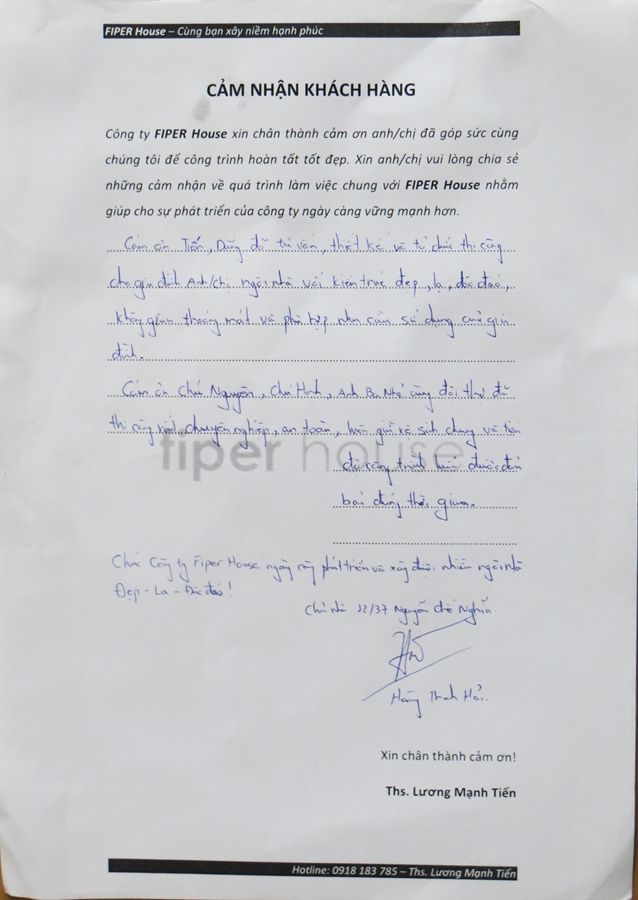 FIPER House – Cùng bạn xây niềm hạnh phúc
CẢM NHẬN KHÁCH HÀNG
Công ty FIPER House xin chân thành cảm ơn anh/chị đã góp sức cùng
chúng tôi để công trình hoàn tất tốt đẹp. Xin anh/chị vui lòng chia sẻ
những cảm nhận về quá trình làm việc chung với FIPER House nhằm
giúp cho sự phát triển của công ty ngày càng vững mạnh hơn.
Cám ơn Tiến, Dũng đã tư vấn, thiết kế và tổ chức thi công
cho gia đình Anh/chị ngôi nhà với kiến trúc đẹp, lạ, độc đáo,
không gian thoáng mát và phù hợp nhu cầu sử dụng của gia
đình.
Cám ơn Chú Nguyên, Chú Minh, Anh Ba Nhỏ cùng đội thợ đã
thi công chuyên nghiệp, an toàn, luôn giữ vệ sinh chung và tiến
fiper house
độ công trình luôn được đảm
bảo đúng thời gian.
Chúc Công ty Fiper House ngày càng phát triển và xây được nhiều ngôi nhà
Đẹp - Lạ - Độc đáo!
Chủ nhà 12/37 Nguyễn Chế Nghĩa
Xin chân thành cảm ơn!
Ths. Lương Mạnh Tiến
Hotline: 0918 183 785 – Ths. Lương Mạnh Tiến